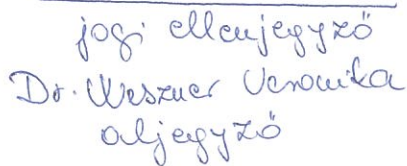 jogi ellenjegyző
Dr. Weszner Veronika
aljegyző